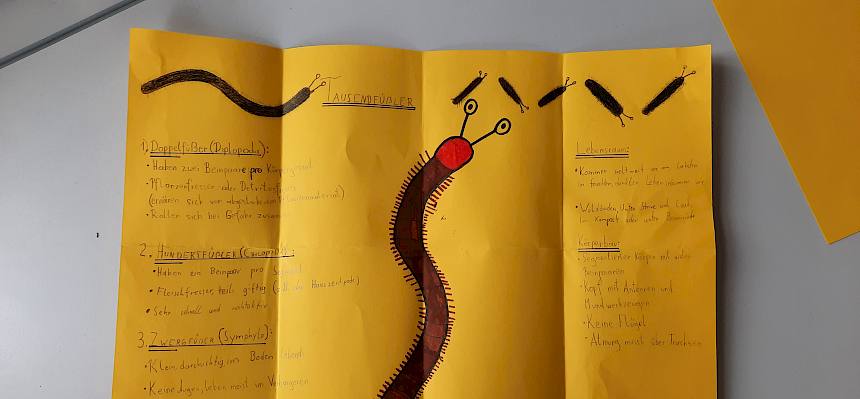 TAUSENDFÜßLER
1. Doppelfüßer (Diplopoda):
• Haben zwei Beinpaare pro
• Pflanzenfresser oder
(ernähren sich von
• Rollen sich bei Gefahr zusammen
2. HUNDERTFÜßLER (Chilopoda):
• Haben ein Beinpaar pro Segment
• Fleischfresser, teils giftig
• Sehr schnell und
3. ZWERGFÜßER (Symphyla):
• Klein, durchsichtig, im Boden lebend
• Keine Augen, leben meist im Verborgenen
Lebensraum:
• Kommen weltweit vor
in feuchten, dunklen
• Waldböden, Unter Steinen und Laub,
im Kompost oder unter Baumrinde
Körperbau:
• Segmentierter Körper mit vielen
Beinpaaren
• Kopf mit Antennen und
Mundwerkzeugen
• Keine Flügel
• Atmung meist über Tracheen